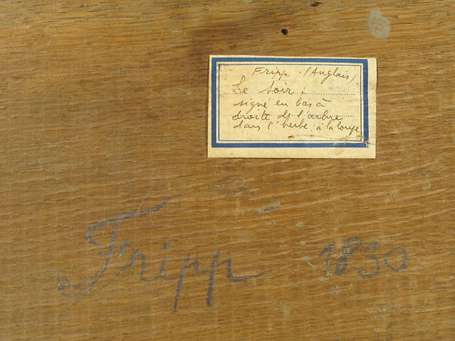 Fripp. (Anglais)
Le Soir.
signé en bas à
droite de l'arbre
dans l'herbe à la loupe
Fripp 1830